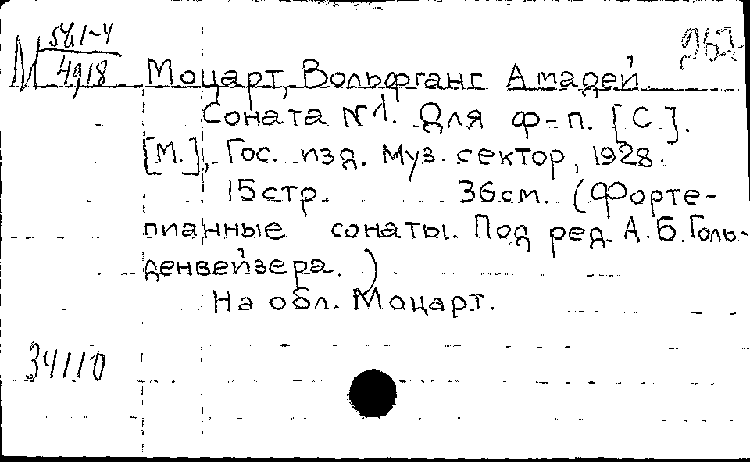 М 581-4
4918
Моцарт, Вольфганг Амадей
Соната №1. Для ф-п. [С.].
[М.], Гос. изд. Муз. сектор, 1928.
15стр. 36см. (Форте-
пианные сонаты. Под ред. А.Б.Голь-
денвейзера.)
На обл. Моцарт.
34110